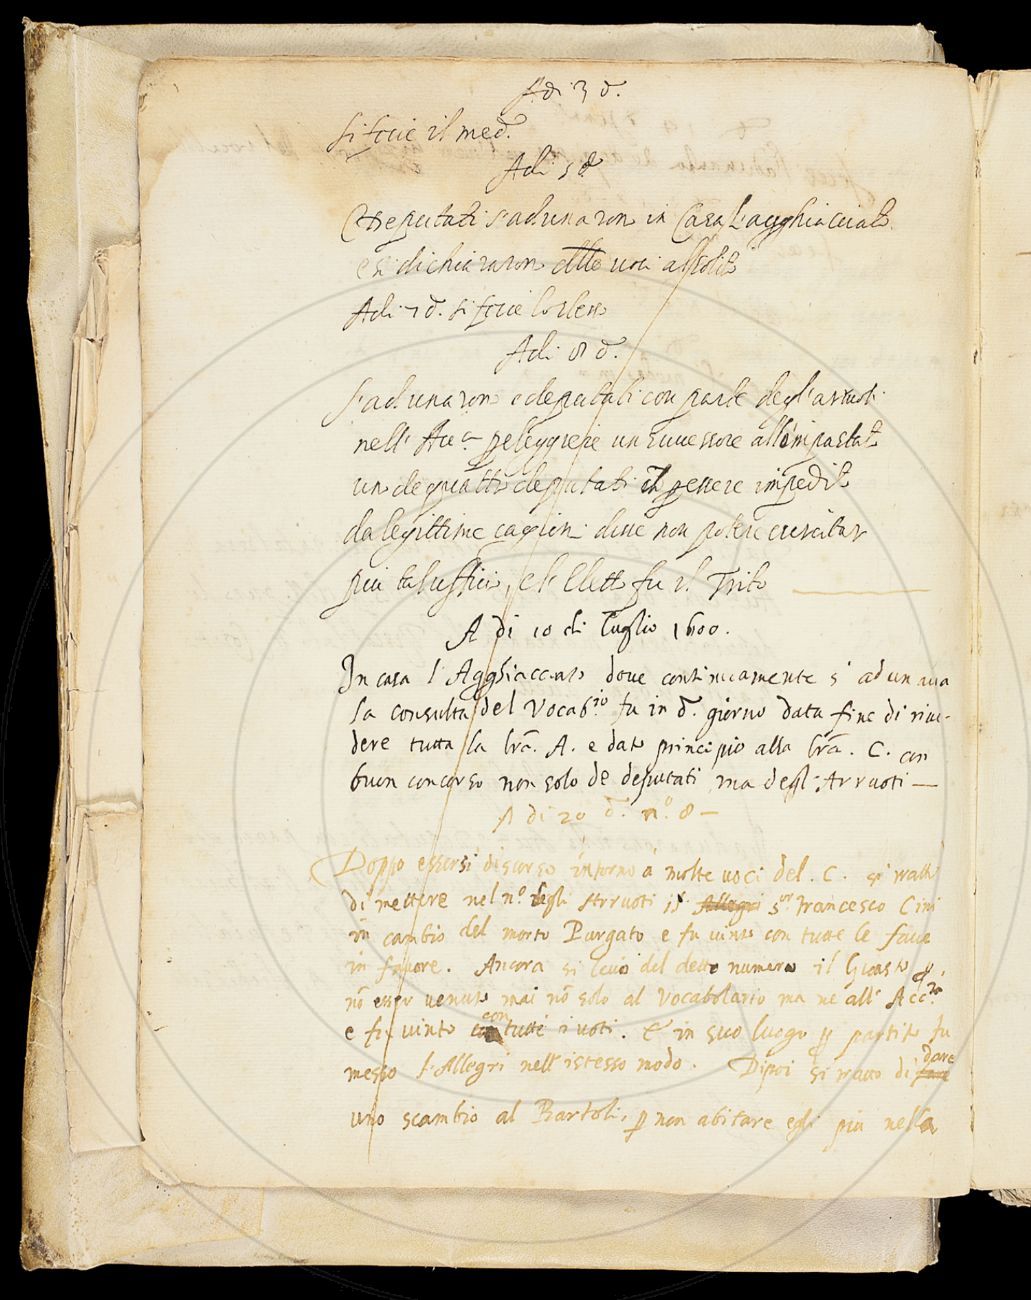 Adi 3 d.
si fecie il med.
Adi 5 d
E deputati s'adunaron in Casa l'agghiacciato
e si dichiararon alle voci assolit
Adi 7 d. si fecie lo stesso
Adi 8 d.
s'adunaron e deputati con parte degl'arruoti
nell'Acc.a p eleggiere un successore all'impastato
un de quattro deputati il p essere impedito
da legittime cagioni disse non potere esercitar
più tal uffici, e l'eletto fu il Trito
A di 10 di luglio 1600.
In casa l'Agghiacciato dove continuamente s'adunava
la consulta del Vocab.rio fu in d. giorno data fine di rive-
dere tutta la lrã. A. e dato principio alla lrã. C. con
buon concorso non solo de deputati, ma degl'Arruoti —
A di 20 d. n.o 8 —
Doppo essersi discorso intorno a molte voci del .C. si trattò
di mettere nel n.o degli Arruoti il Allegri s.or Francesco Cini
in cambio del morto Purgato e fu vinto con tutte le fave
in favore. Ancora si levò del detto numero il Guasto p
nõ esser venuto mai nõ solo al Vocabolario ma ne all'Acc.
e fu vinto con tutti i voti. E in suo luogo p partito fu
messo l'Allegri nell'istesso modo. Dipoi si trattò di dare
uno scambio al Bartoli, p non abitare egli più nella